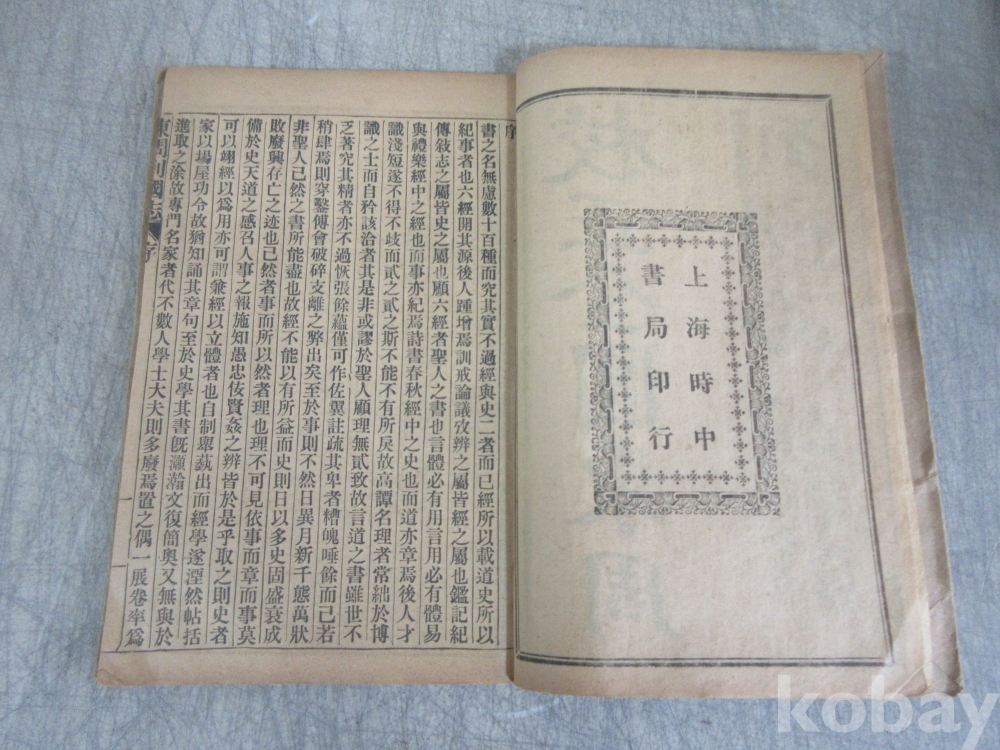 上海時中
書局印行
序
書之名無慮數十百種而究其實不過經與史二者而已經所以載道史所以
紀事者也六經開其源後人踵增焉訓戒論議攷辨之屬皆經之屬也鑑記紀
傳敍志之屬皆史之屬也顧六經者聖人之書也言體必有用言用必有體易
與禮樂經中之經也而事亦紀焉詩書春秋經中之史也而道亦章焉後人才
識淺短遂不得不歧而貳之貳之斯不能不有所戾故高譚名理者常絀於博
識之士而自矜該洽者其是非或謬於聖人顧理無貳致故言道之書雖世不
乏著究其精者亦不過恢張餘蘊僅可作佐翼註疏其卑者糟魄唾餘而已若
稍肆焉則穿鑿傅會破碎支離之弊出矣至於事則不然日異月新千態萬狀
非聖人已然之書所能盡也故經不能以有所益而史則日以多史固盛衰成
敗廢興存亡之迹也已然者事而所以然者理也理不可見依事而章而事莫
備於史天道之感召人事之報施知愚忠佞賢姦之辨皆於是乎取之則史者
可以翊經以爲用亦可謂兼經以立體者也自制舉蓺出而經學遂湮然帖括
家以塲屋功令故猶知誦其章句至於史學其書旣灝瀚文復簡奧又無與於
進取之涂故專門名家者代不數人學士大夫則多廢焉置之偶一展卷率爲
東周列國志 序 一
kobay